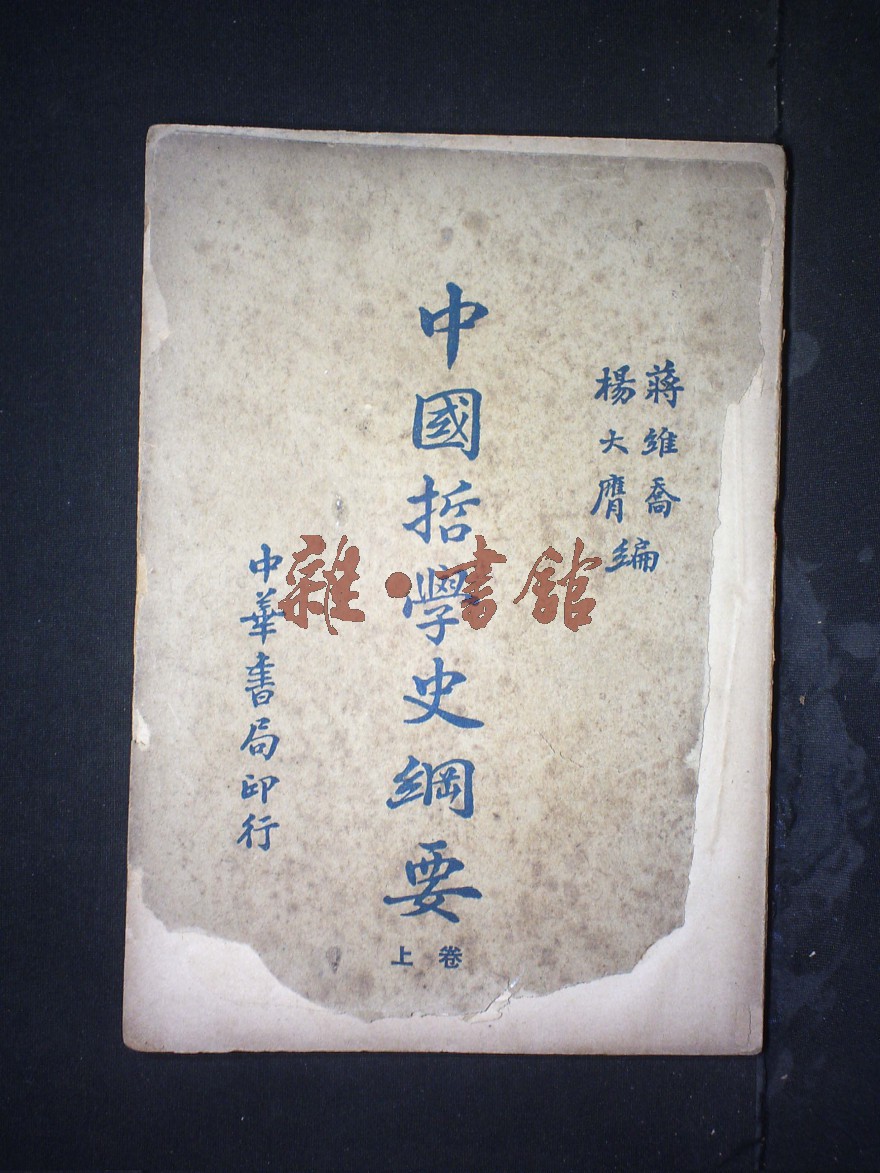 蔣維喬
楊大膺編
中國哲學史綱要
卷上
中華書局印行
雜·書館